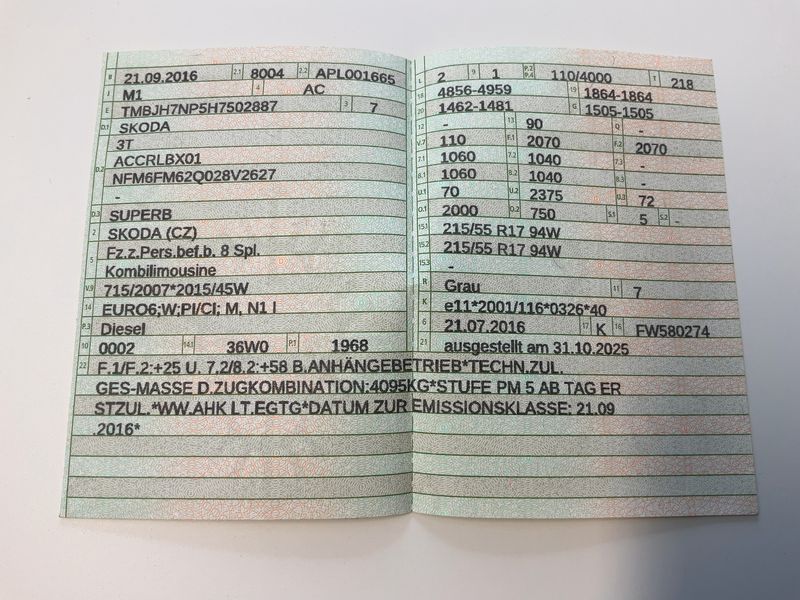 B 21.09.2016 2.1 8004 2.2 APL001665
J M1 4 AC
E TMBJH7NP5H7502887 3 7
D.1 SKODA
3T
D.2 ACCRLBX01
NFM6FM62Q028V2627
-
D.3 SUPERB
2 SKODA (CZ)
5 Fz.z.Pers.bef.b. 8 Spl.
Kombilimousine
V.9 715/2007*2015/45W
14 EURO6;W;PI/CI; M, N1 I
P.3 Diesel
10 0002 14.1 36W0 P.1 1968
L 2 9 1 P.2 P.4 110/4000 T 218
18 4856-4959 19 1864-1864
20 1462-1481 G 1505-1505
12 - 13 90 Q -
V.7 110 F.1 2070 F.2 2070
7.1 1060 7.2 1040 7.3 -
8.1 1060 8.2 1040 8.3 -
U.1 70 U.2 2375 U.3 72
O.1 2000 O.2 750 S.1 5 S.2 -
15.1 215/55 R17 94W
15.2 215/55 R17 94W
15.3 -
R Grau 11 7
K e11*2001/116*0326*40
6 21.07.2016 17 K 16 FW580274
21 ausgestellt am 31.10.2025
22 F.1/F.2:+25 U. 7.2/8.2:+58 B.ANHÄNGEBETRIEB*TECHN.ZUL.
GES-MASSE D.ZUGKOMBINATION:4095KG*STUFE PM 5 AB TAG ER
STZUL.*WW.AHK LT.EGTG*DATUM ZUR EMISSIONSKLASSE: 21.09
.2016*